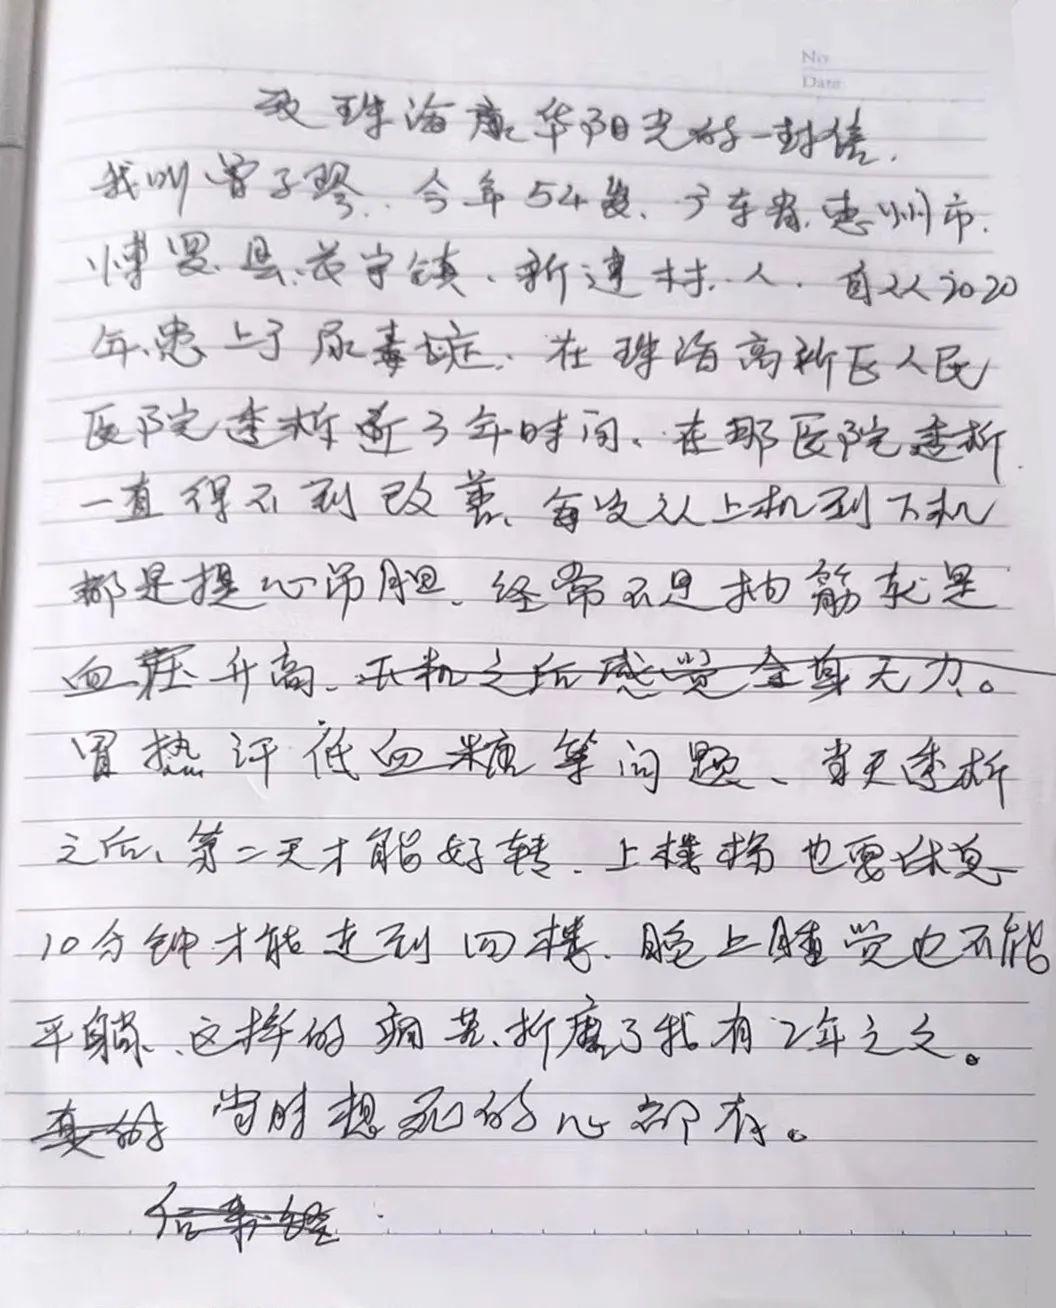 No
Date
致珠海康华阳光的一封信.
我叫曾子璆.今年54岁、广东省.惠州市.
博罗县、长宁镇、新建村.人.自从2020
年、患上了尿毒症.在珠海高新区人民
医院透析近3年时间、在那医院透析
一直得不到改善、每次从上机到下机
都是提心吊胆、经常不是抽筋就是
血压升高、下机之后感觉全身无力。
冒热汗低血糖等问题、当天透析
之后、第二天才能好转.上楼梯也要休息
10分钟才能走到四楼、晚上睡觉也不能
平躺、这样的痛苦、折磨了我有2年之久。
真的 当时想死的心都有。
后来经